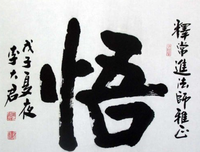 釋常進法師雅正
悟
戊子夏夜
李大君